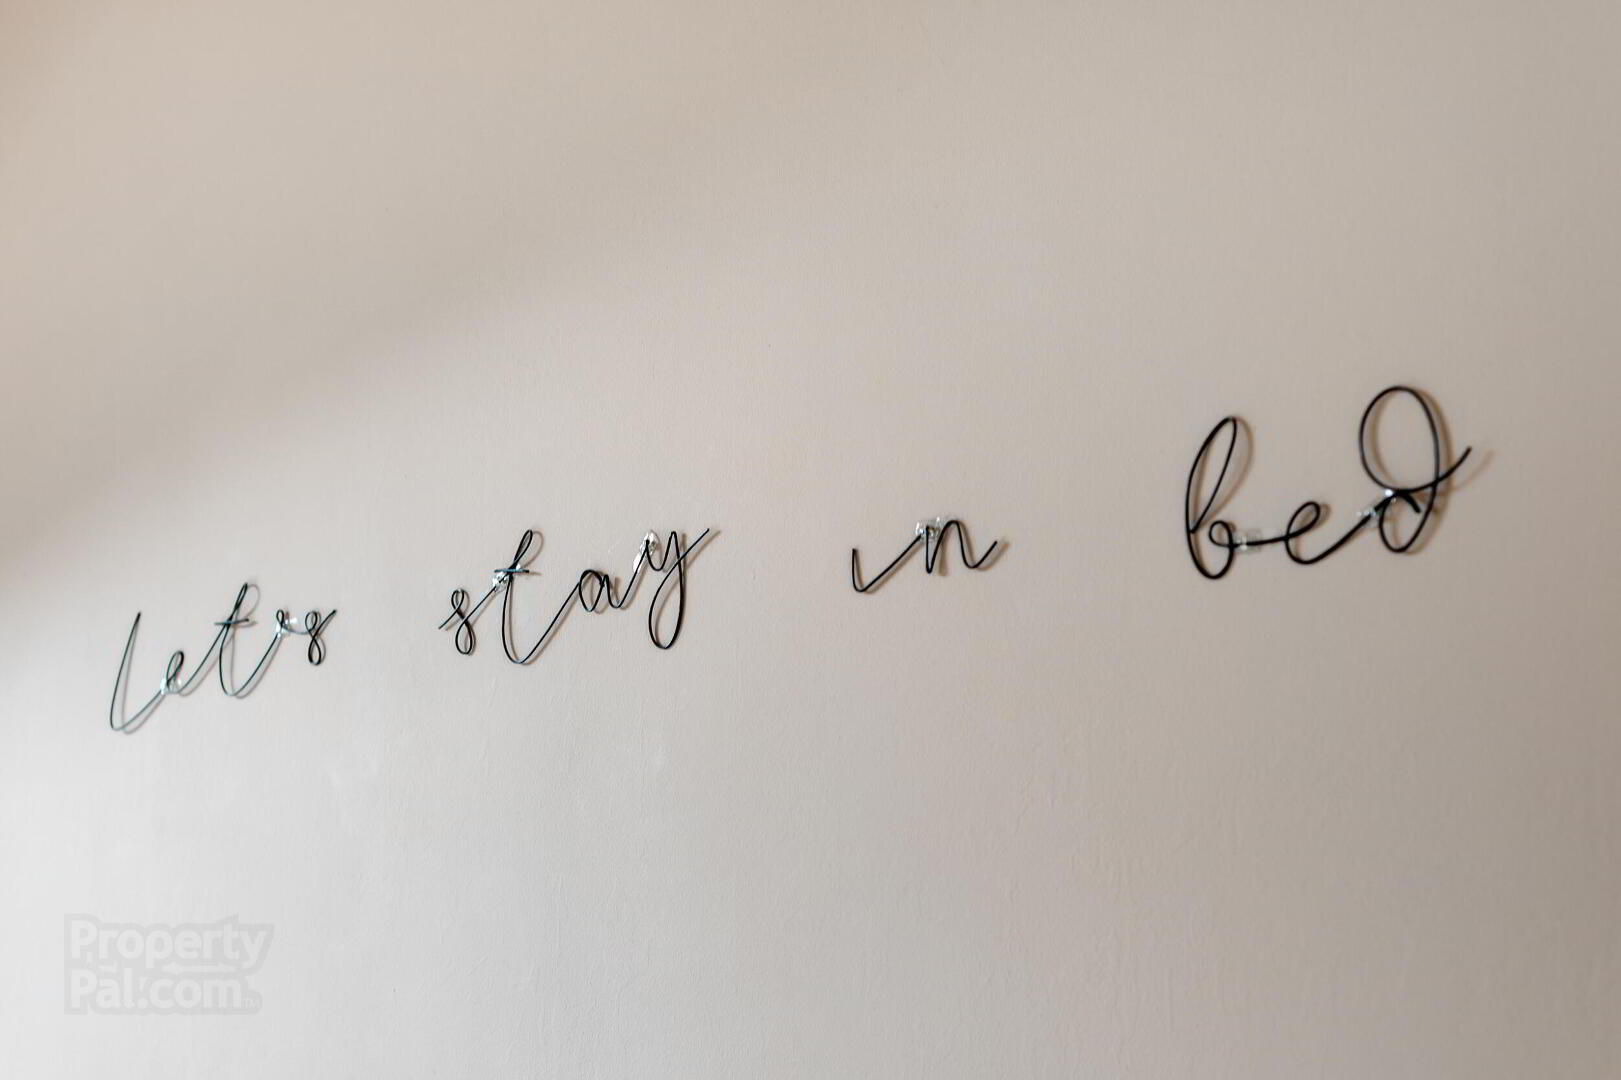 lets stay in bed
Property
Pal.com